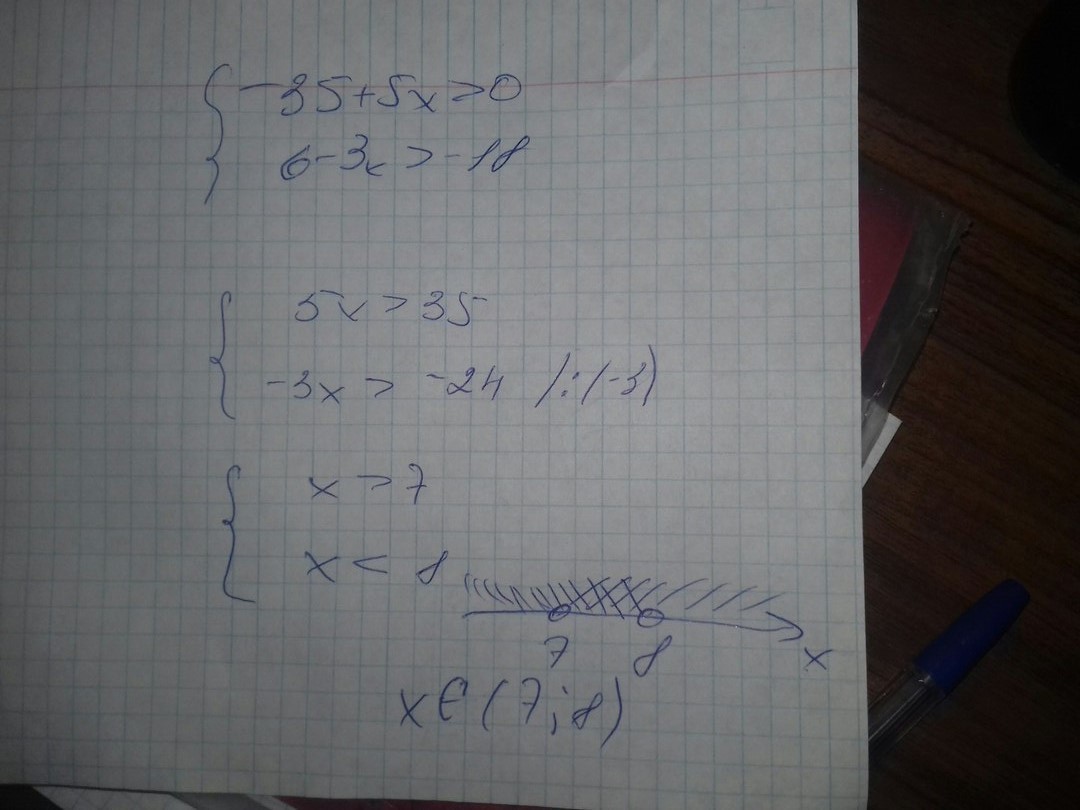 -35+5x>0
6-3x>-18
5x>35
-3x>-24 /:(-3)
x>7
x<8
7 8 x
x∈(7;8)